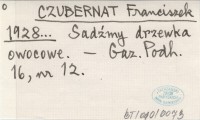 CZUBERNAT Franciszek
1928... Sadźmy drzewka
owocowe. – Gaz. Podh.
16, nr 12.